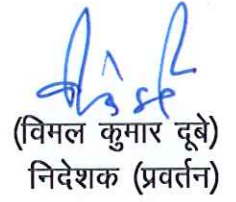 (विमल कुमार दूबे)
निदेशक (प्रवर्तन)